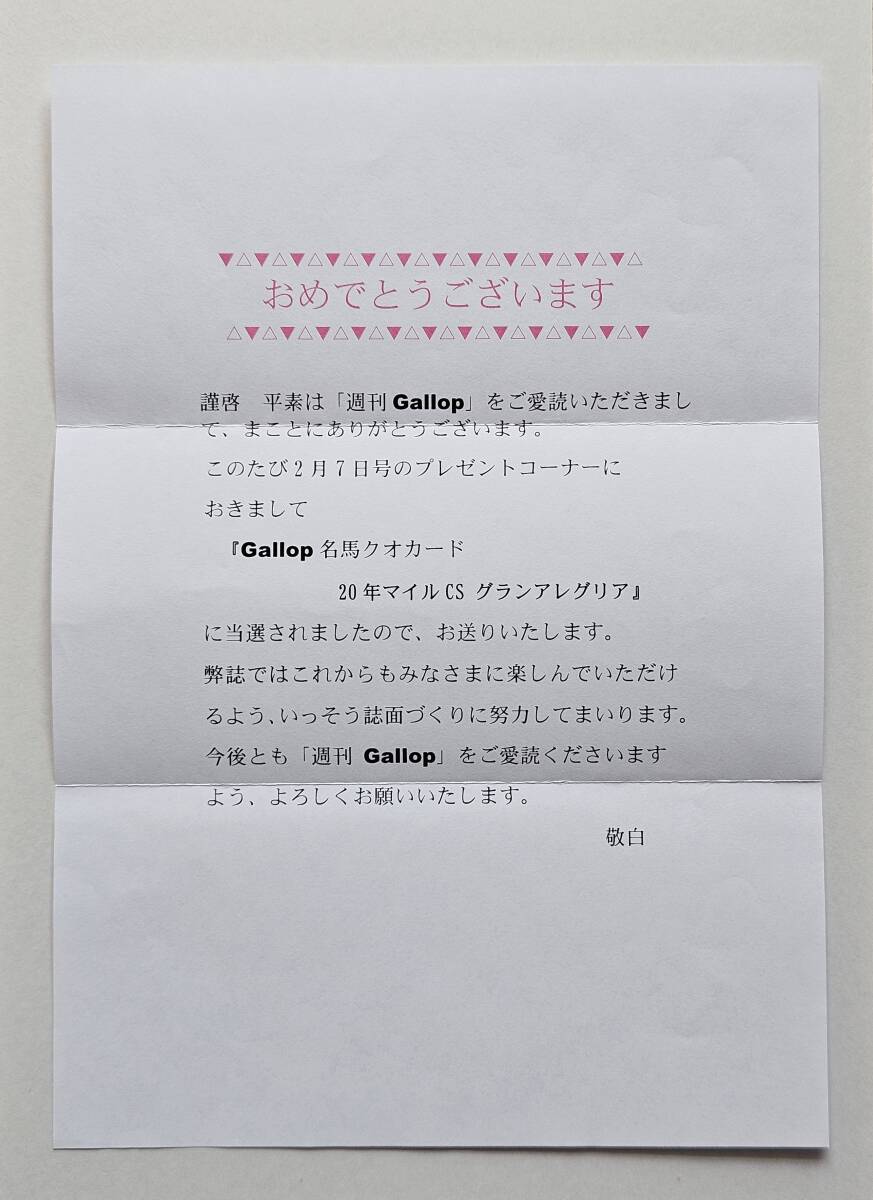 ▼△▼△▼△▼△▼△▼△▼△▼△▼△▼△▼△▼△
おめでとうございます
△▼△▼△▼△▼△▼△▼△▼△▼△▼△▼△▼△▼
謹啓　平素は「週刊Gallop」をご愛読いただきまし
て、まことにありがとうございます。
このたび2月7日号のプレゼントコーナーに
おきまして
『Gallop 名馬クオカード
20年マイルCS グランアレグリア』
に当選されましたので、お送りいたします。
弊誌ではこれからもみなさまに楽しんでいただけ
るよう、いっそう誌面づくりに努力してまいります。
今後とも「週刊 Gallop」をご愛読くださいます
よう、よろしくお願いいたします。
敬白